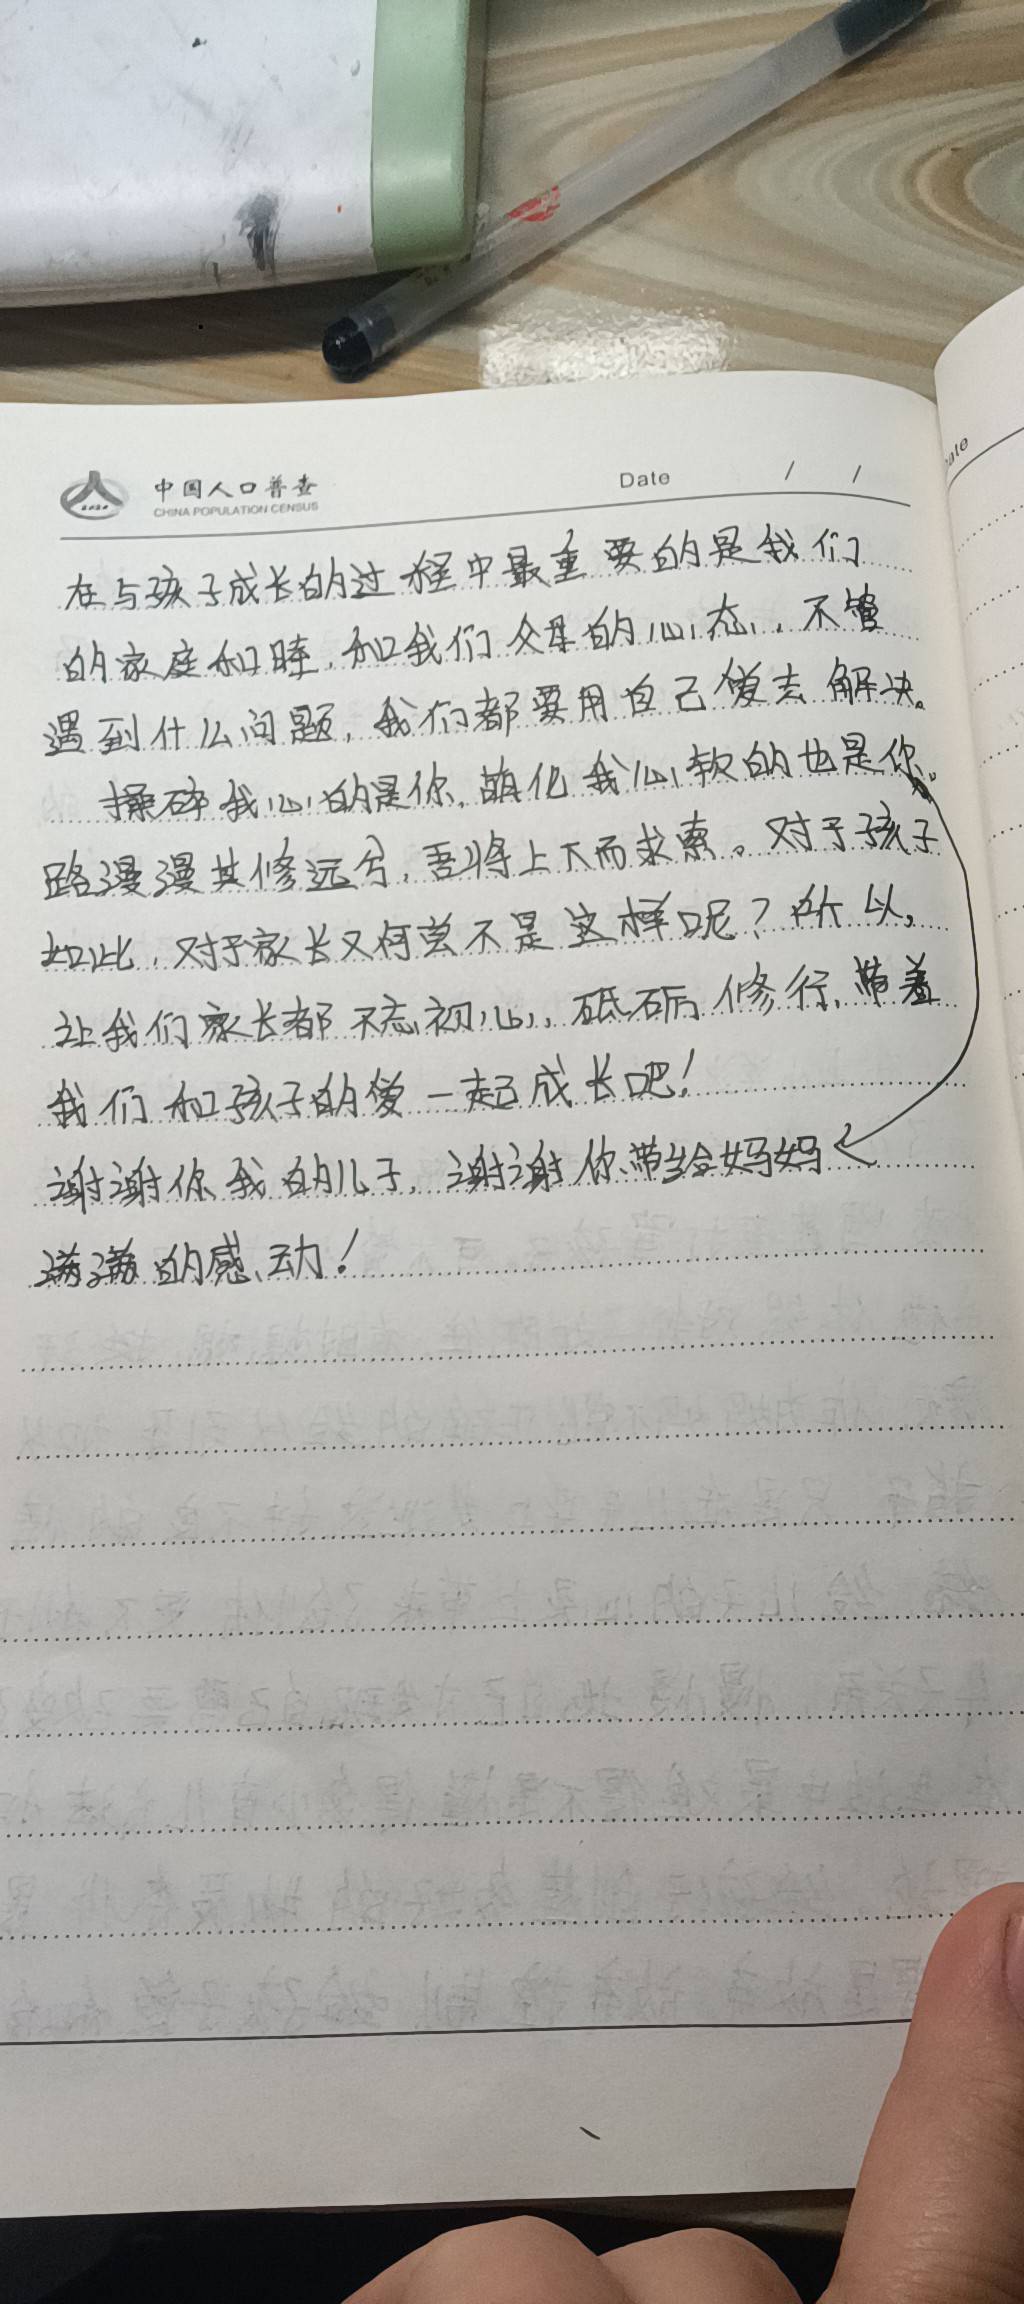 中国人口普查
CHINA POPULATION CENSUS
Date / /
在与孩子成长的过程中最重要的是我们
的家庭和睦,和我们父母的心态,不管
遇到什么问题,我们都要用自己爱去解决。
操碎我心的是你,萌化我心软的也是你。
路漫漫其修远兮,吾将上下而求索。对于孩子
如此,对于家长又何尝不是这样呢?所以,
让我们家长都不忘初心,砥砺修行,带着
我们和孩子的爱一起成长吧!
谢谢你我的儿子,谢谢你带给妈妈
满满的感动!